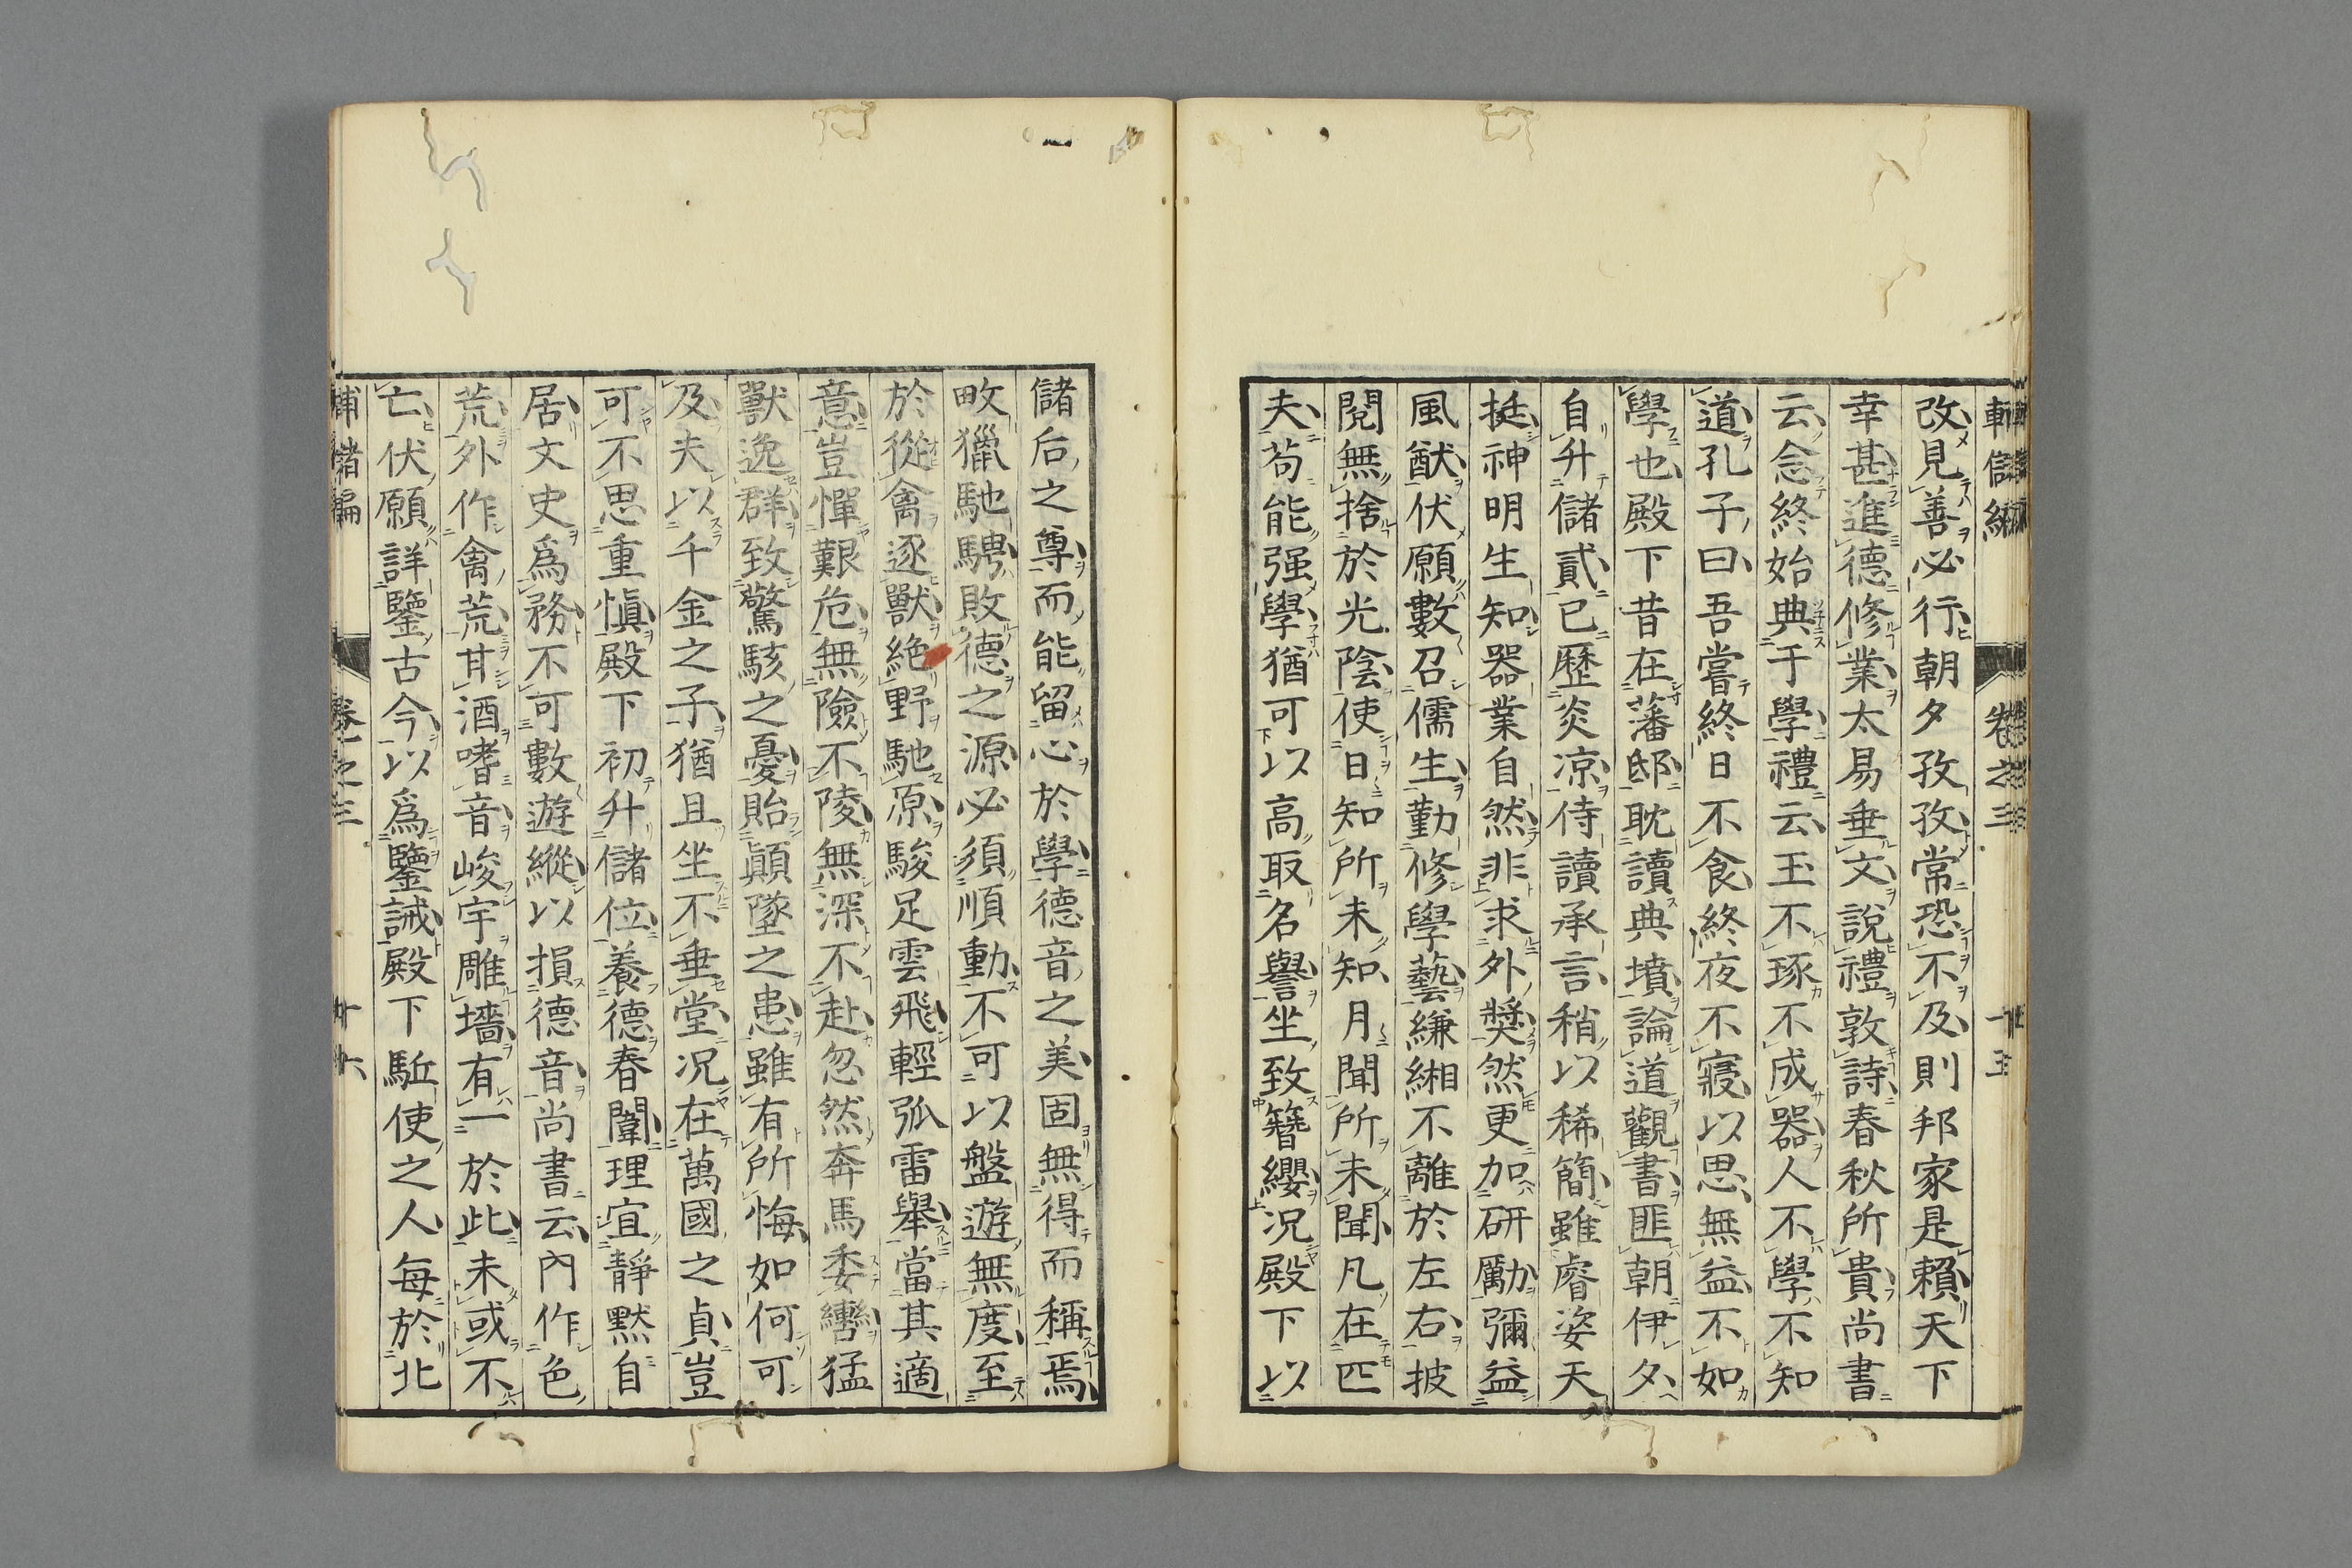 改見善必行朝夕孜孜常恐不及則邦家是賴天下
幸甚進德修業太易垂文說禮敦詩春秋所貴尚書
云念終始典于學禮云玉不琢不成器人不學不知
道孔子曰吾嘗終日不食終夜不寢以思無益不如
學也殿下昔在藩邸耽讀典墳論道觀書匪朝伊夕
自升儲貳已歷炎凉侍讀承言稍以稀簡雖睿姿天
挺神明生知器業自然非求外奬然更加研勵彌益
風猷伏願數召儒生勤修學藝縑緗不離於左右披
閱無捨於光陰使日知所未知月聞所未聞凡在匹
夫茍能强學猶可以高取名譽坐致簪纓况殿下以
儲后之尊而能留心於學德音之美固無得而稱焉
畋獵馳騁敗德之源必須順動不可以盤遊無度至
於從禽逐獸絶野馳原駿足雲飛輕弧雷舉當其適
意豈憚艱危無險不陵無深不赴忽然奔馬委轡猛
獸逸群致驚駭之憂貽顚墜之患雖有所悔如何可
及夫以千金之子猶且坐不垂堂况在萬國之貞豈
可不思重愼殿下初升儲位養德春闈理宜靜默自
居文史爲務不可數遊縱以損德音尚書云內作色
荒外作禽荒甘酒嗜音峻宇雕墻有一於此未或不
亡伏願詳鑒古今以爲鑒誡殿下駈使之人每於北
補儲編
卷之三
十六